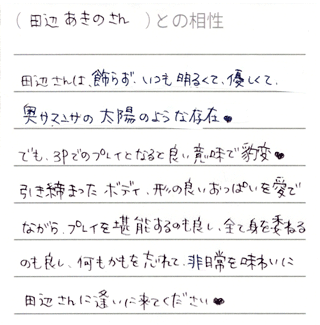 （田辺 あきのさん ）との相性
田辺さんは、飾らず、いつも明るくて、優しくて、
奥サマユサの太陽のような存在♥
でも、3Pでのプレイとなると良い意味で豹変♥
引き締まったボディ、形の良いおっぱいを愛で
ながら、プレイを堪能するのも良し、全て身を委ねる
のも良し、何もかもを忘れて、非日常を味わいに
田辺さんに逢いに来てください♥